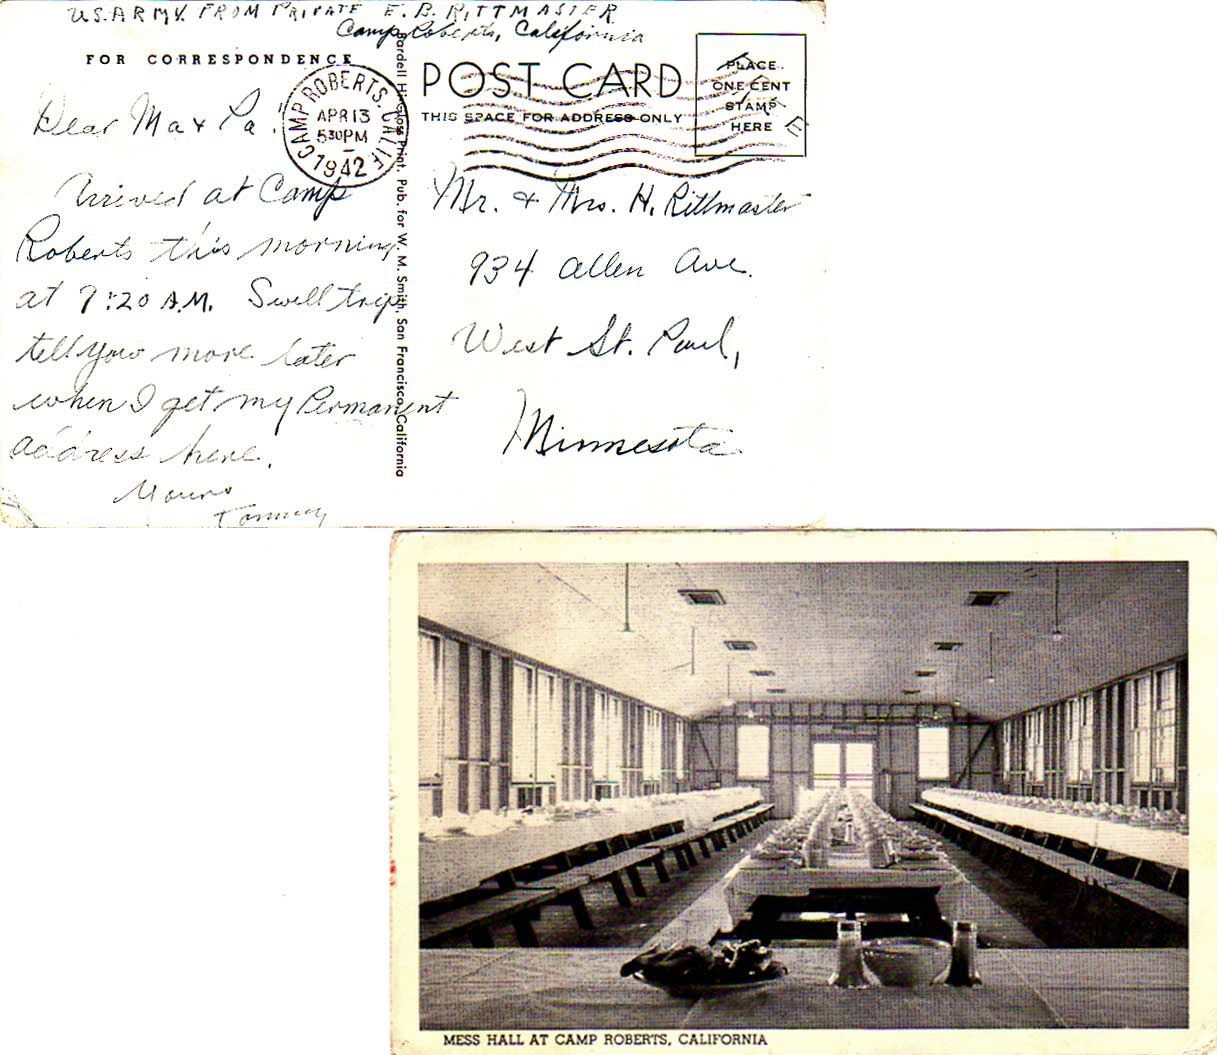 U.S. ARMY. FROM PRIVATE E. B. RITTMASTER
Camp Roberts, California
FOR CORRESPONDENCE
Dear Ma & Pa.
Arrived at Camp
Roberts this morning
at 7:20 A.M. Swell trip
tell you more later
when I get my Permanent
address here.
Yours
CAMP ROBERTS, CALIF
APR 13
5 30 PM
1942
Bardell Hi-Gloss Print. Pub. for W. M. Smith, San Francisco, California
POST CARD
THIS SPACE FOR ADDRESS ONLY
PLACE
ONE CENT
STAMP
HERE
FREE
Mr. & Mrs. H. Rittmaster
934 Allen Ave.
West St. Paul,
Minnesota
MESS HALL AT CAMP ROBERTS, CALIFORNIA